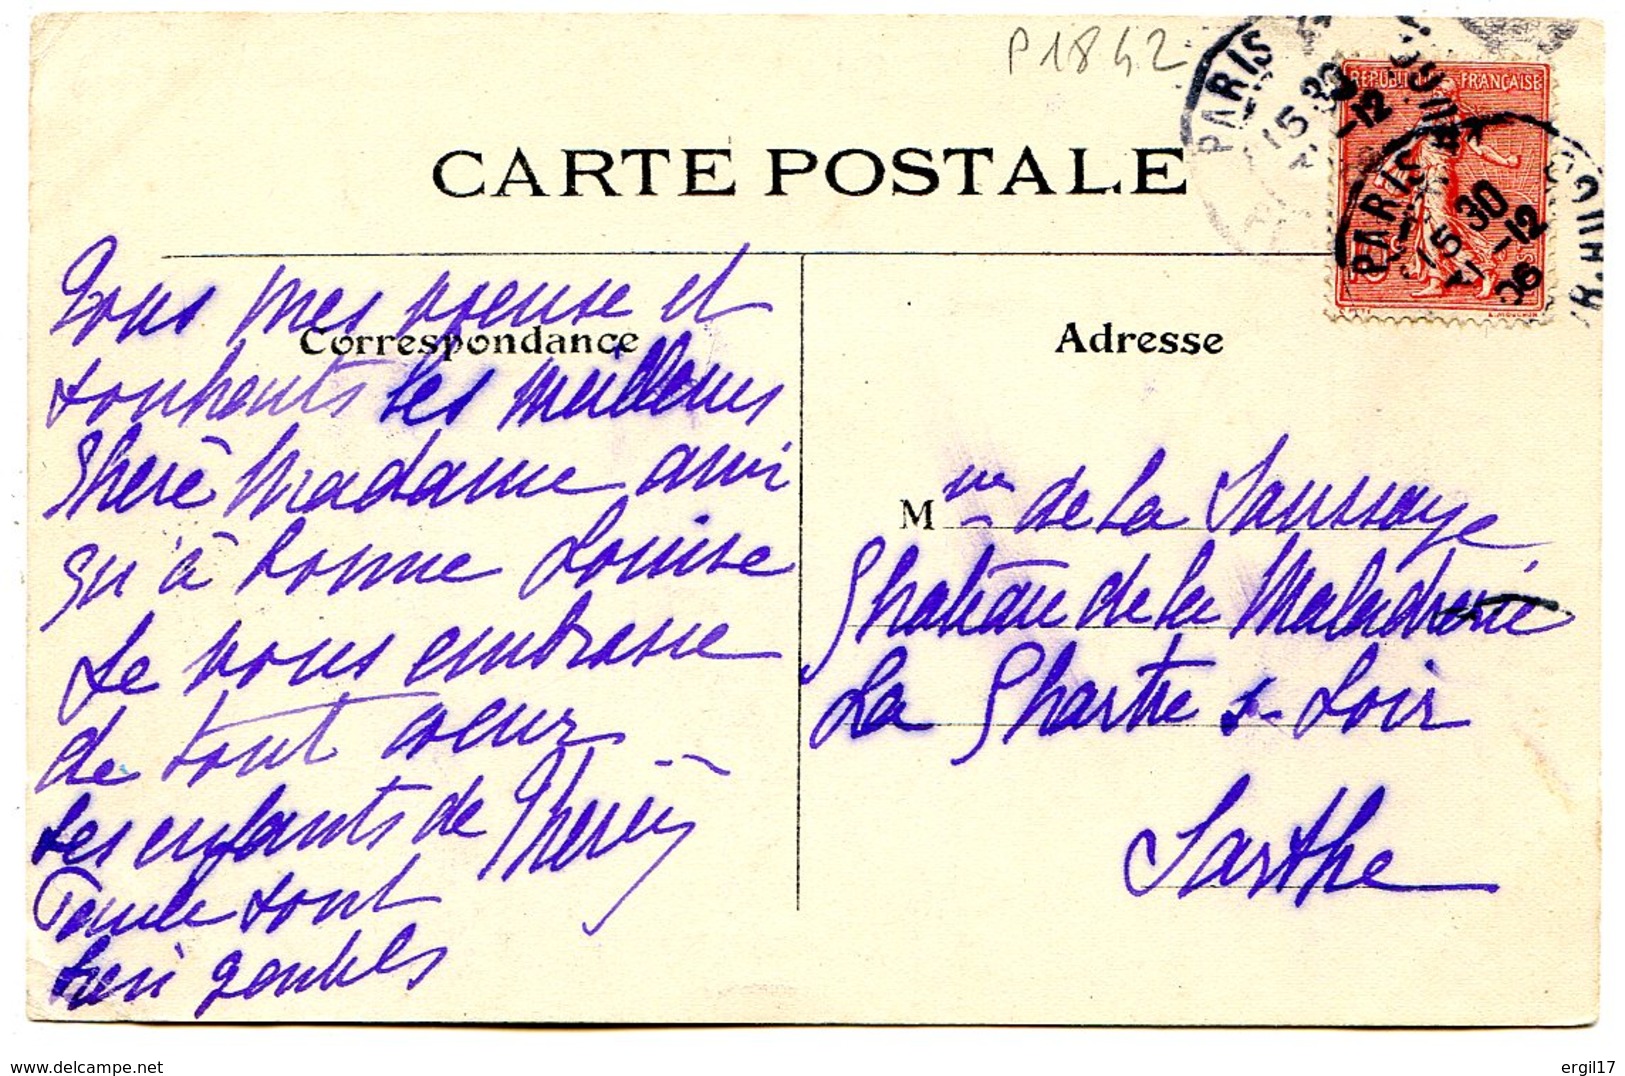 P1842
PARIS
15 30
-12
PARIS
15 30
7 -12
06
REPUBLIQUE FRANÇAISE
CARTE POSTALE
Correspondance
Tous mes voeux et
souhaits les meilleurs
Chère Madame ainsi
qu'à bonne Louise
Je vous embrasse
de tout coeur
Les enfants de
Paule sont
bien gentils
Adresse
Mme de la Saussaye
Château de la Maladrerie
La Chartre s- Loir
Sarthe
https://www.delcampe.net
ergil17